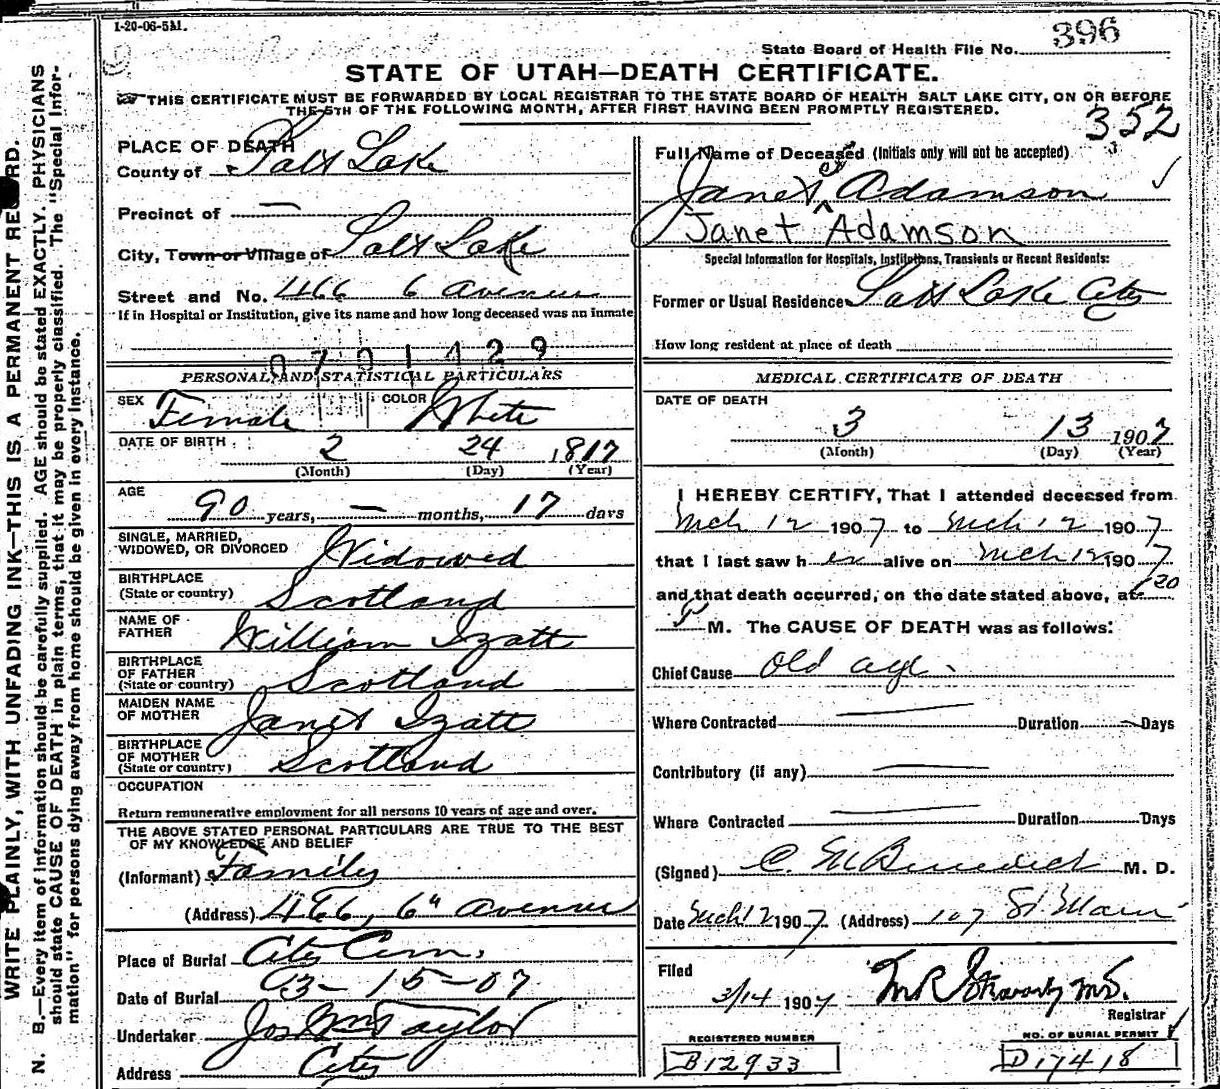 1-20-06-5M.
State Board of Health File No. 396
STATE OF UTAH—DEATH CERTIFICATE.
THIS CERTIFICATE MUST BE FORWARDED BY LOCAL REGISTRAR TO THE STATE BOARD OF HEALTH SALT LAKE CITY, ON OR BEFORE
THE 5TH OF THE FOLLOWING MONTH, AFTER FIRST HAVING BEEN PROMPTLY REGISTERED.
352
PLACE OF DEATH
County of Salt Lake
Precinct of —
City, Town or Village of Salt Lake
Street and No. 466 6 Avenue
If in Hospital or Institution, give its name and how long deceased was an inmate
0701429
PERSONAL AND STATISTICAL PARTICULARS
SEX Female COLOR White
DATE OF BIRTH 2 24 1817
(Month) (Day) (Year)
AGE
90 years, — months, 17 days
SINGLE, MARRIED,
WIDOWED, OR DIVORCED Widowed
BIRTHPLACE
(State or country) Scotland
NAME OF
FATHER William Izatt
BIRTHPLACE
OF FATHER
(State or country) Scotland
MAIDEN NAME
OF MOTHER Janet Izatt
BIRTHPLACE
OF MOTHER
(State or country) Scotland
OCCUPATION
Return remunerative employment for all persons 10 years of age and over.
THE ABOVE STATED PERSONAL PARTICULARS ARE TRUE TO THE BEST
OF MY KNOWLEDGE AND BELIEF
(Informant) Family
(Address) 466, 6" Avenue
Place of Burial City Cem.
Date of Burial 3-15-07
Undertaker Jos Wm Taylor
Address City
Full Name of Deceased (Initials only will not be accepted)
Janet Adamson
Janet Adamson
Special Information for Hospitals, Institutions, Transients or Recent Residents:
Former or Usual Residence Salt Lake City
How long resident at place of death
MEDICAL CERTIFICATE OF DEATH
DATE OF DEATH
3 13 1907
(Month) (Day) (Year)
I HEREBY CERTIFY, That I attended deceased from
Mch 12 1907 to Mch 12 1907
that I last saw her alive on Mch 12 1907
and that death occurred, on the date stated above, at 20
P M. The CAUSE OF DEATH was as follows:
Chief Cause Old age.
Where Contracted — Duration — Days
Contributory (if any) —
Where Contracted — Duration Days
(Signed) C. M Benedict M. D.
Date Mch 12 1907 (Address) 107 S. Main
Filed
3/14 1907 M.D.
Registrar
REGISTERED NUMBER NO. OF BURIAL PERMIT
B12933 D17418
WRITE PLAINLY, WITH UNFADING INK—THIS IS A PERMANENT RECORD.
N. B.—Every item of information should be carefully supplied. AGE should be stated EXACTLY. PHYSICIANS
should state CAUSE OF DEATH in plain terms, that it may be properly classified. The "Special Infor-
mation" for persons dying away from home should be given in every instance.